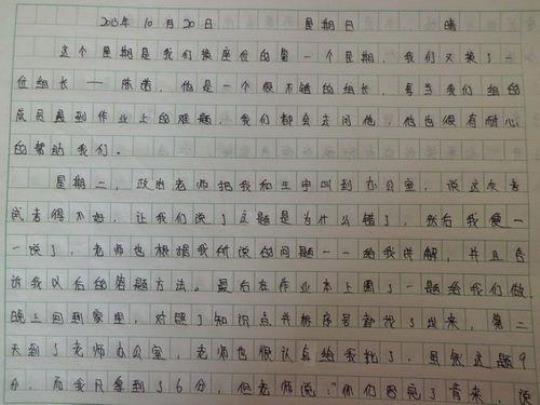 2013年10月20日 星期日 晴
这个星期是我们换座位的第一个星期，我们又换了一
位组长——陈诺，他是一个很不错的组长，每当我们组的
成员遇到作业上的难题，我们都会去问他，他也很有耐心
的帮助我们。
星期二，政治老师把我和王宇叫到办公室，说这次考
试考得不好，让我们说了这题是为什么错了，然后我便一
一说了，老师也根据我所说的问题一一给我讲解，并且告
诉我以后的答题方法。最后在作业本上圈了一题给我们做，
晚上回到家里，对照了知识点并标序号都找了出来，第二
天到了老师办公室，老师也很认真给我批了，虽然这题9
分，而我只拿到了6分，但老师说：“你们跑完了前来，说